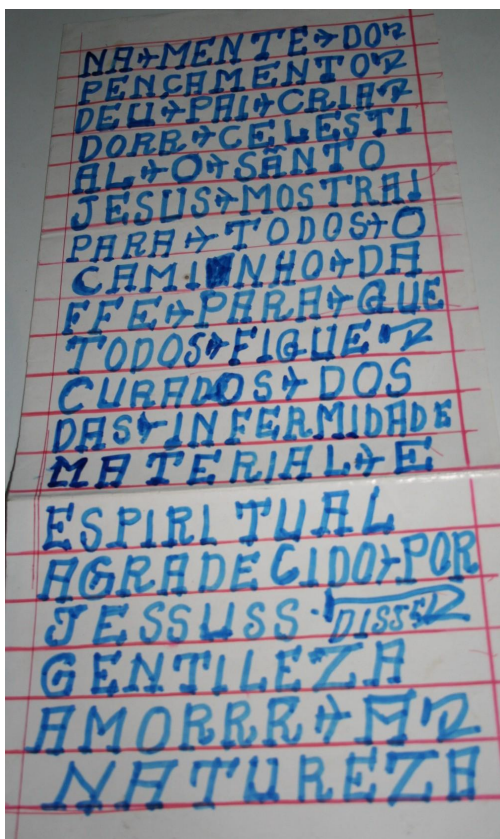 NA→MENTE→DO
PENCAMENTO
DEU→PAI→CRIA
DORR→CELESTI
AL→O→SÃNTO
JESUS→MOSTRAI
PARA→TODOS→O
CAMINHO→DA
FFE→PARA→QUE
TODOS→FIGUE
CURADOS→DOS
DAS→INFERMIDADE
MATERIAL→E
ESPIRITUAL
AGRADECIDO→POR
JESSUSS·DISSE
GENTILEZA
AMORRR→A
NATUREZA